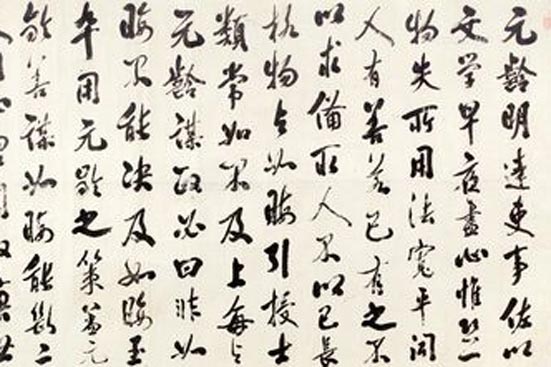 元齡明達吏事佐以
文学早夜盡心惟恐一
物失所用法寬平聞
人有善若己有之不
以求備取人不以己長
格物与如晦引授士
類常如不及上每与
元齡謀政必曰非如
晦不能決及如晦至
卒用元齡之策蓋元
齡善謀如晦能斷二